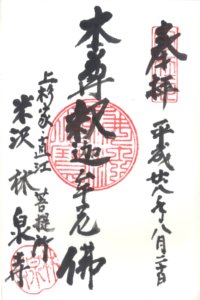 奉拝
平成廿八年八月二十日
本尊釈迦牟尼佛
上杉家直江菩提所
米沢林泉寺